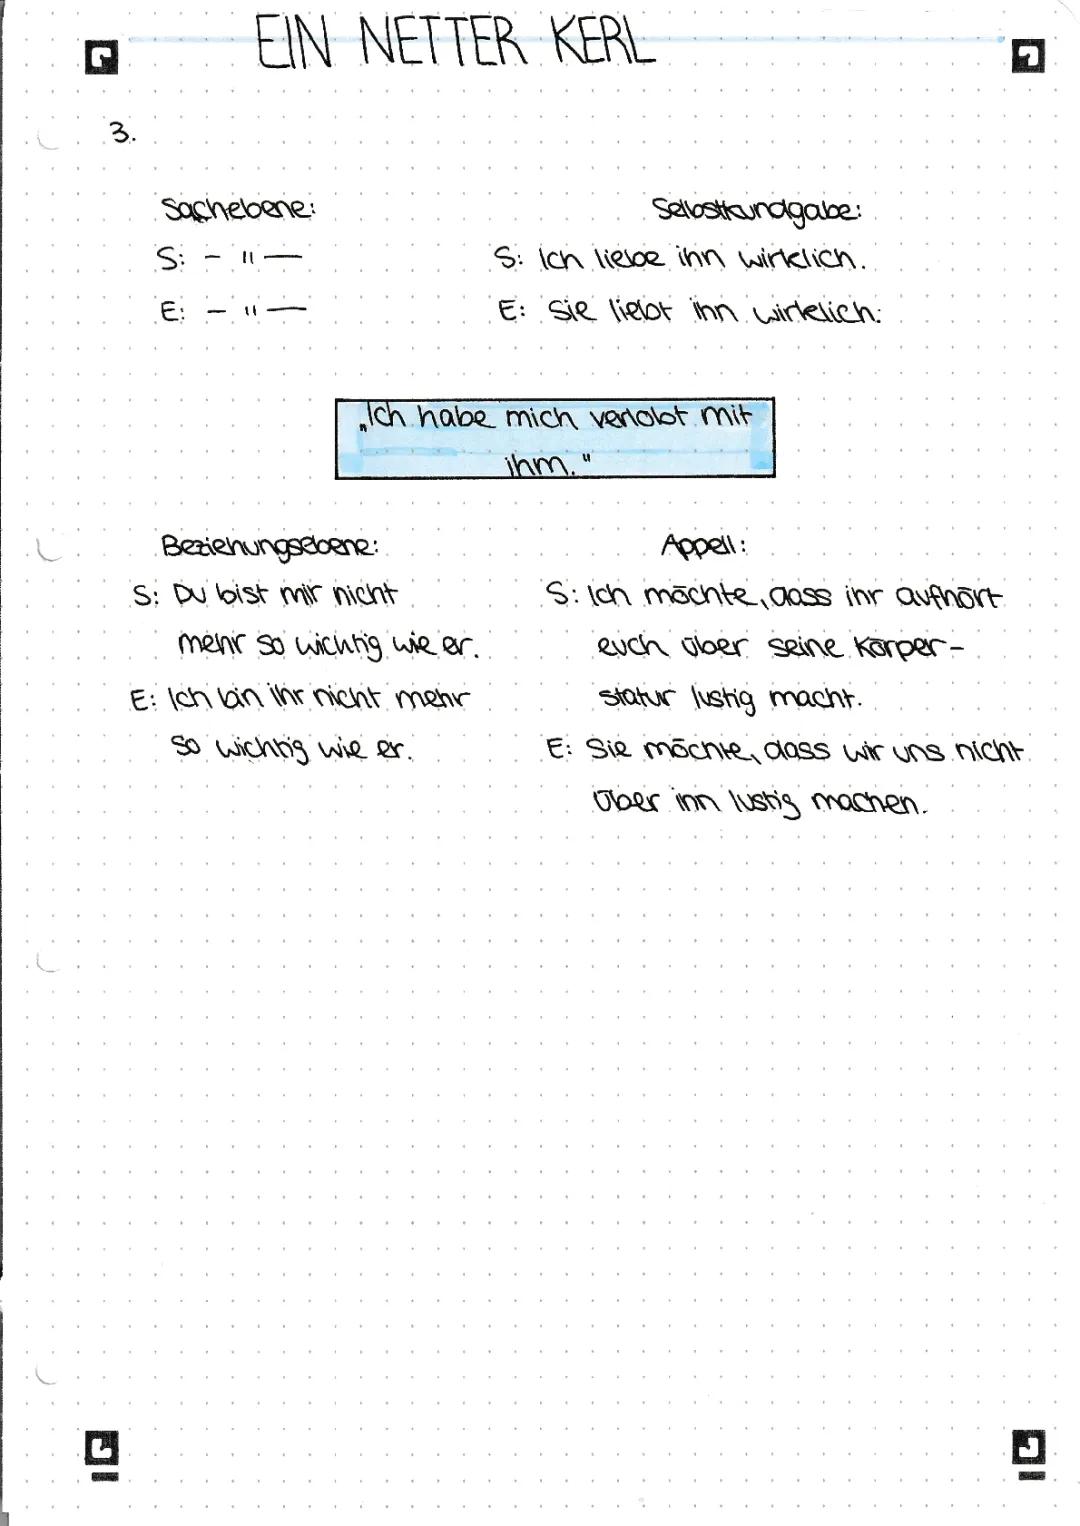 EIN NETTER KERL
3.
Sachebene:
S: - " -
E: - " -
Selbstkundgabe:
S: Ich liebe ihn wirklich.
E: Sie liebt ihn wirklich.
„Ich habe mich verlobt mit
ihm."
Beziehungsebene:
S: Du bist mir nicht
mehr so wichtig wie er.
E: Ich bin ihr nicht mehr
so wichtig wie er.
Appell:
S: Ich möchte, dass ihr aufhört
euch über seine Körper-
statur lustig macht.
E: Sie möchte, dass wir uns nicht
über ihn lustig machen.